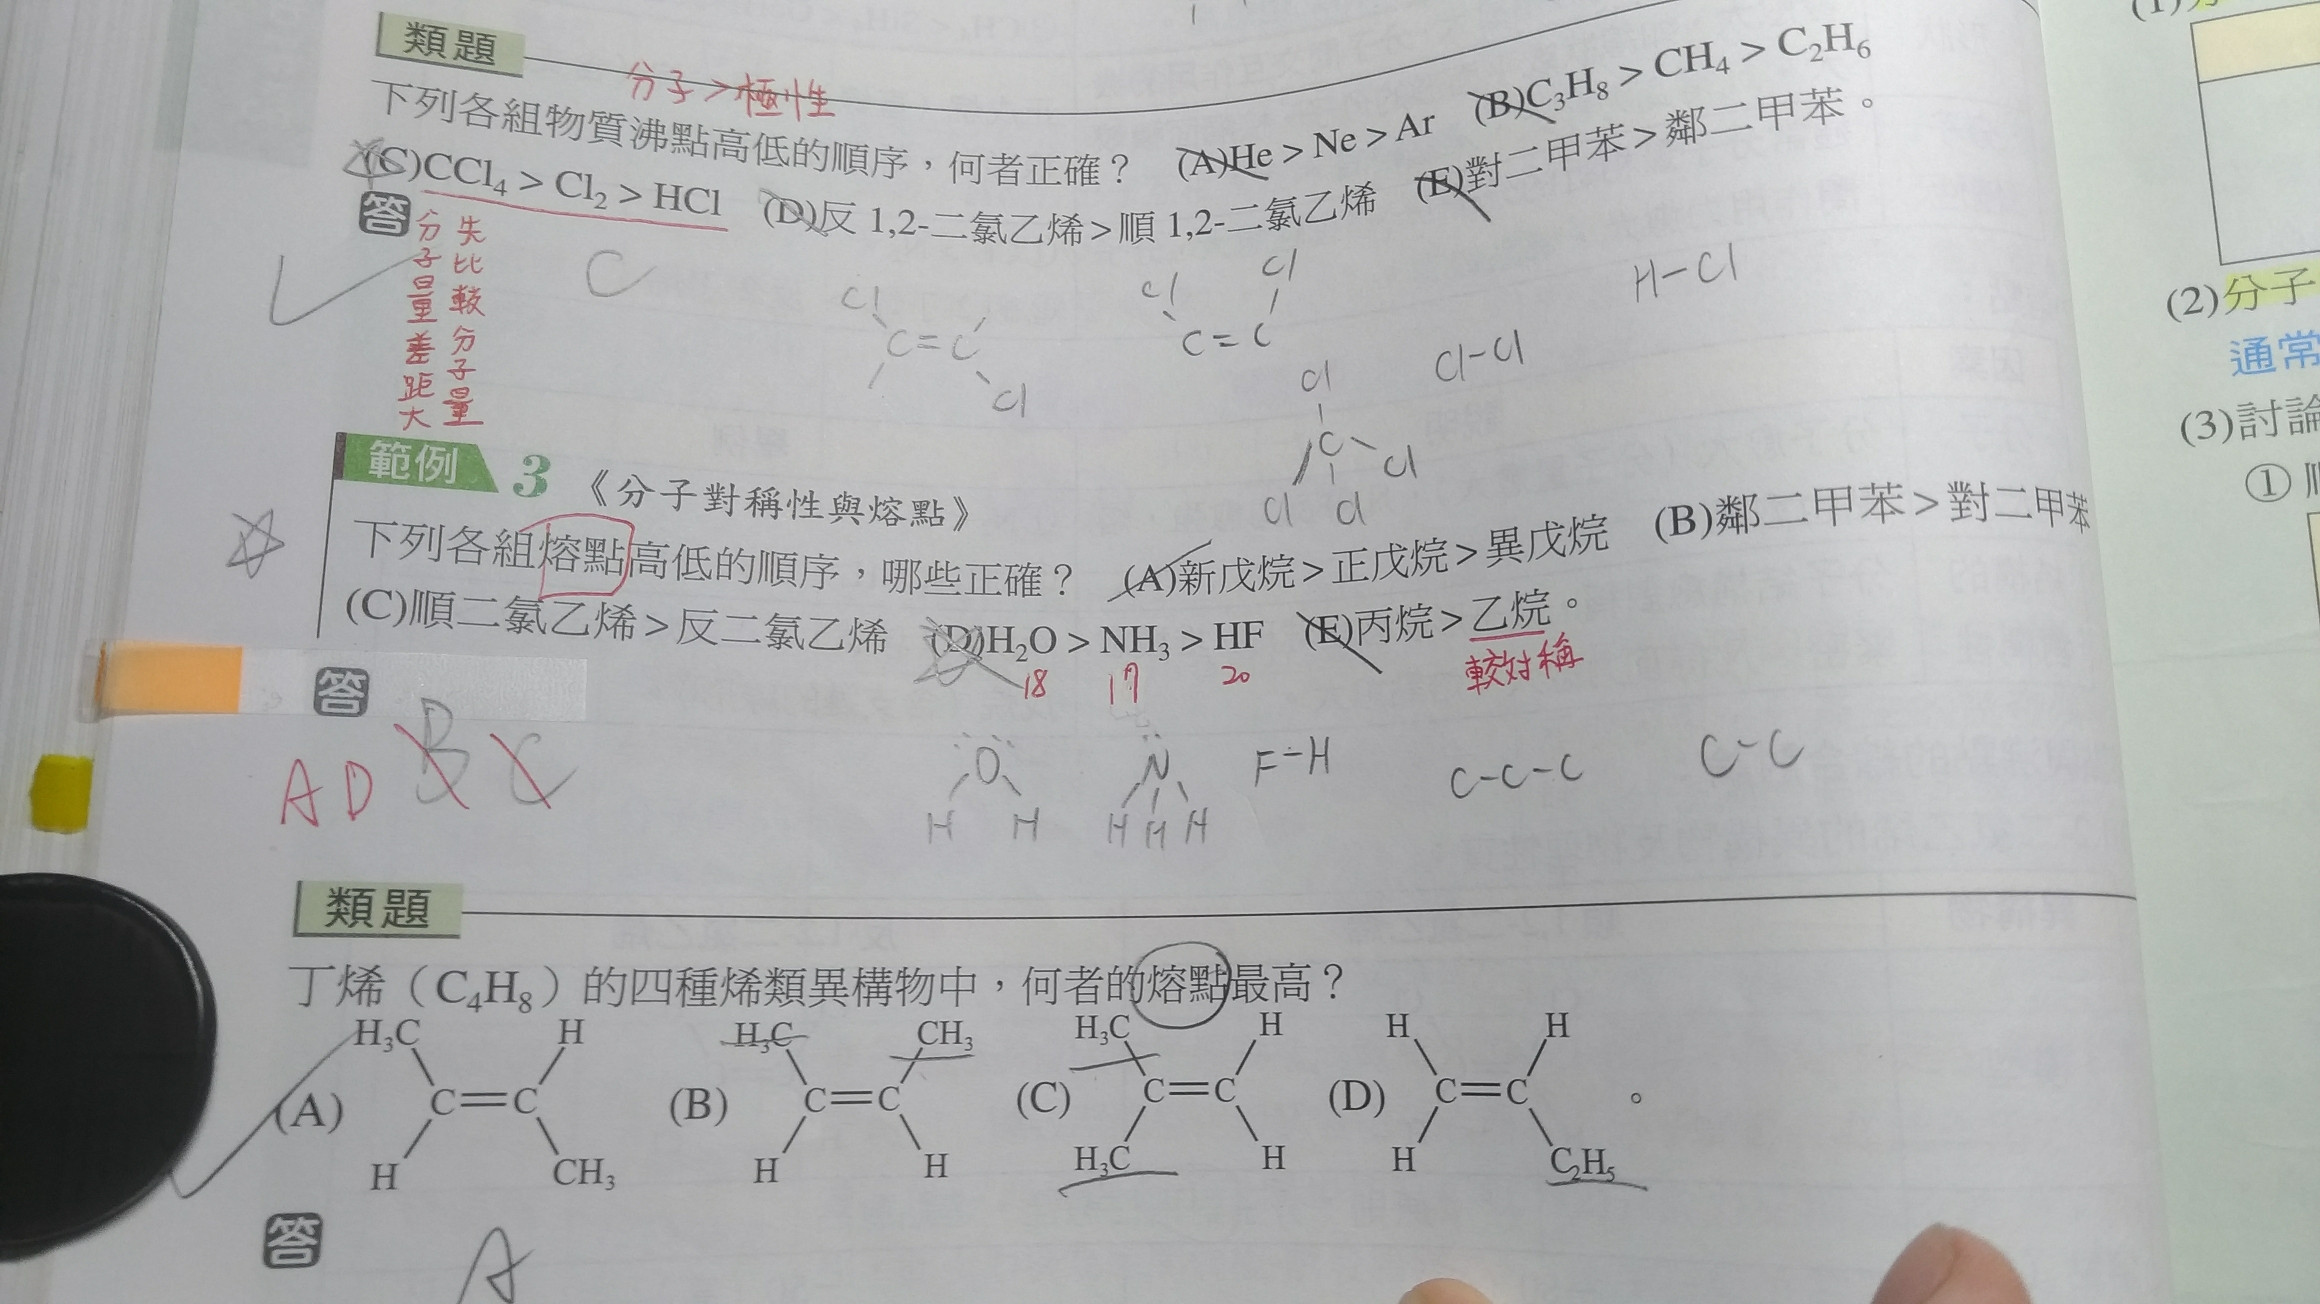 類題
分子＞極性
下列各組物質沸點高低的順序，何者正確？ (A)He > Ne > Ar (B)C₃H₈ > CH₄ > C₂H₆
(C)CCl₄ > Cl₂ > HCl (D)反 1,2-二氯乙烯>順 1,2-二氯乙烯 (E)對二甲苯>鄰二甲苯。
答
先比較分子量
分子量差距大
C
Cl C=C Cl
Cl Cl C=C
H-Cl
Cl-Cl
Cl C Cl Cl Cl
範例 3 《分子對稱性與熔點》
下列各組熔點高低的順序，哪些正確？ (A)新戊烷>正戊烷>異戊烷 (B)鄰二甲苯>對二甲苯
(C)順二氯乙烯>反二氯乙烯 (D)H₂O > NH₃ > HF (E)丙烷>乙烷。
18 17 20 較対稱
答
A D B C
O H H
N H H H
F-H
C-C-C
C-C
類題
丁烯（C₄H₈）的四種烯類異構物中，何者的熔點最高？
(A) H₃C H C=C H CH₃
(B) H₃C CH₃ C=C H H
(C) H₃C H C=C H₃C H
(D) H H C=C H C₂H₅ 。
答
A
(2)分子
通常
(3)討論
①